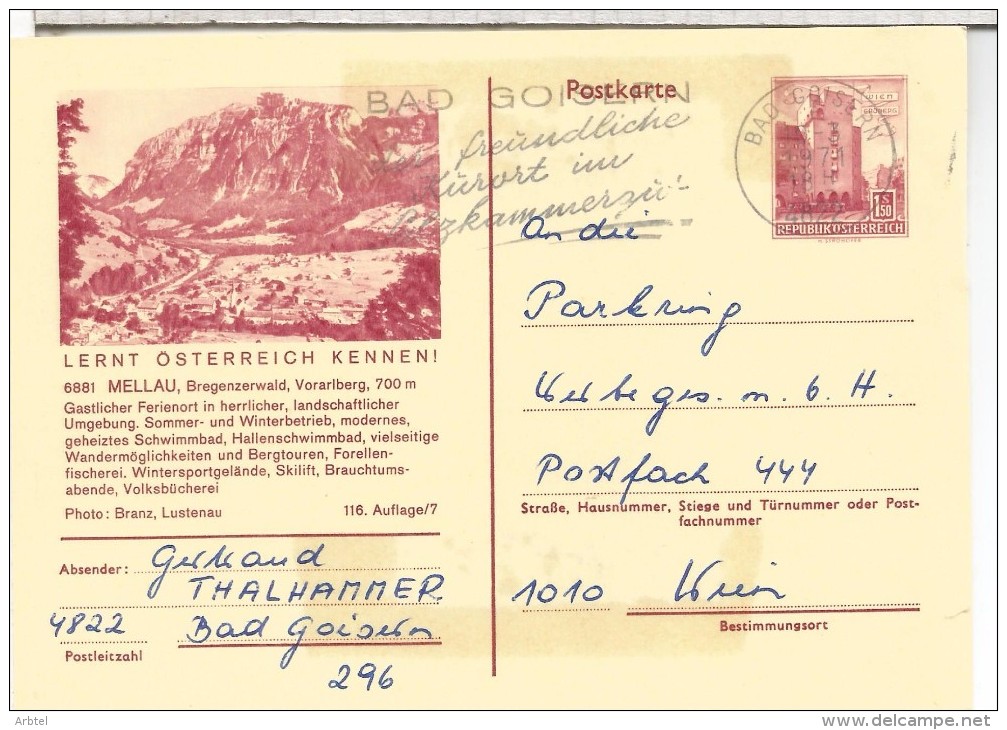 Postkarte
BAD GOISERN
freundliche
Kurort im
BAD GOISERN
WIEN
ERDBERG
4822
1 S 50
REPUBLIK ÖSTERREICH
LERNT ÖSTERREICH KENNEN!
6881 MELLAU, Bregenzerwald, Vorarlberg, 700 m
Gastlicher Ferienort in herrlicher, landschaftlicher
Umgebung. Sommer- und Winterbetrieb, modernes,
geheiztes Schwimmbad, Hallenschwimmbad, vielseitige
Wandermöglichkeiten und Bergtouren, Forellen-
fischerei. Wintersportgelände, Skilift, Brauchtums-
abende, Volksbücherei
Photo: Branz, Lustenau 116. Auflage/7
Absender: Gertraud
THALHAMMER
4822 Bad Goisern
Postleitzahl
296
An die
Parkring
Werbeges. m. b. H.
Postfach 444
Straße, Hausnummer, Stiege und Türnummer oder Post-
fachnummer
1010 Wien
Bestimmungsort
Arbtel
delcampe.net